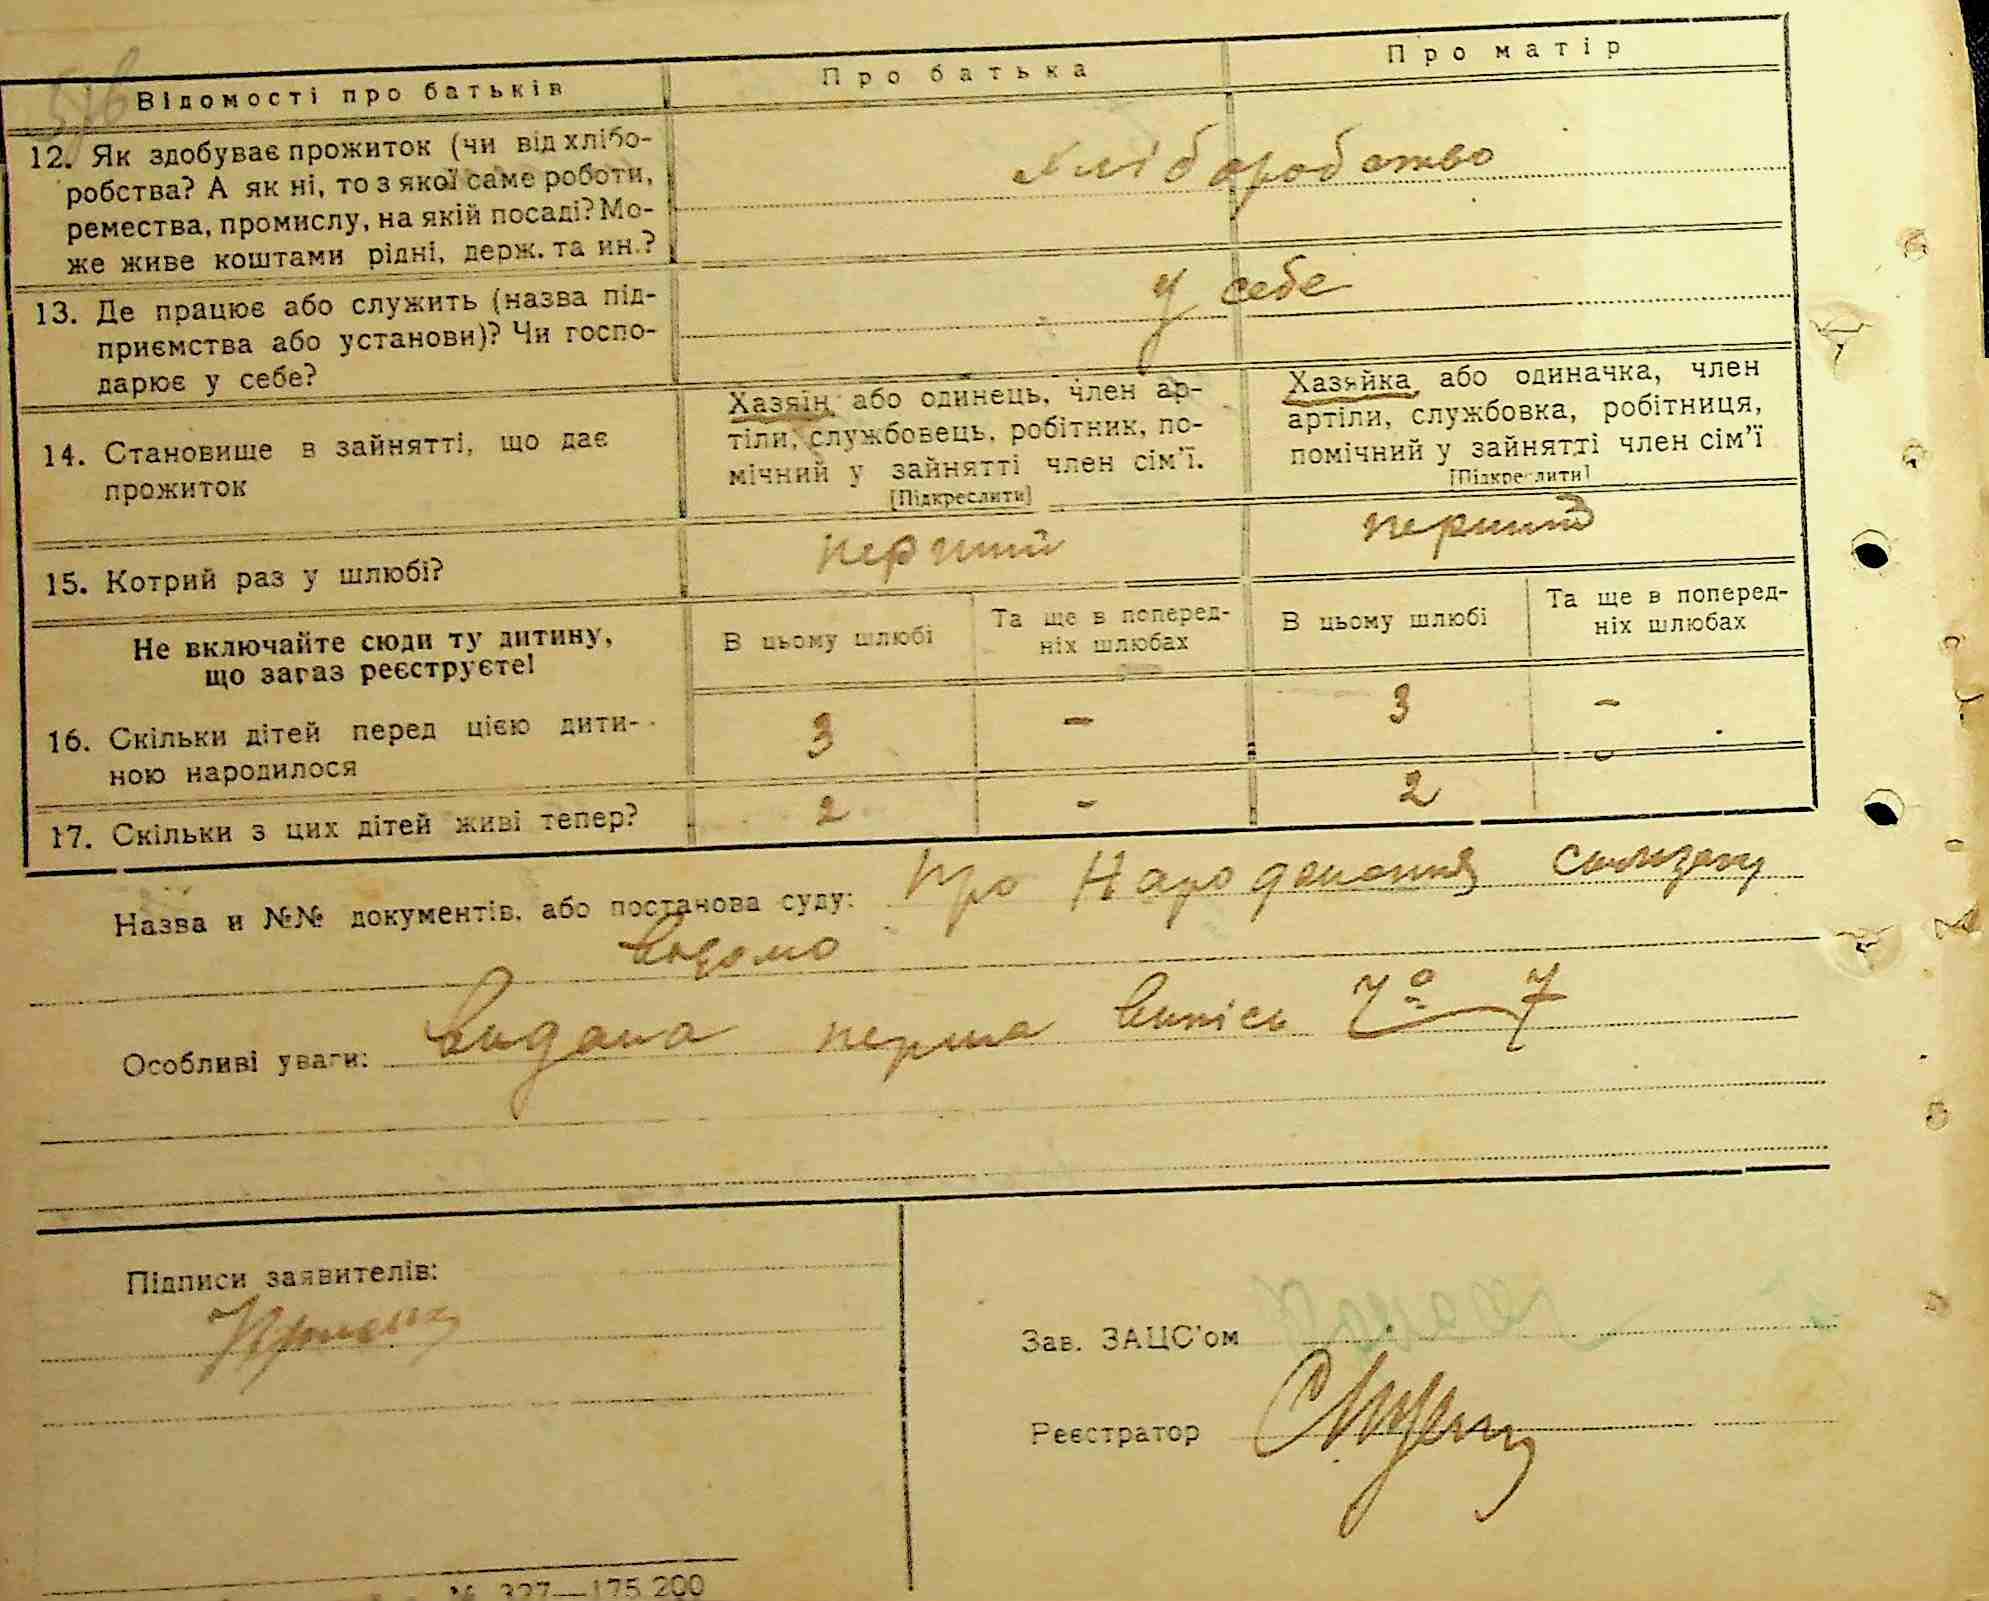 Відомості про батьків
Про батька
Про матір
12. Як здобуває прожиток (чи від хлібо-
робства? А як ні, то з якої саме роботи,
ремества, промислу, на якій посаді? Мо-
же живе коштами рідні, держ. та ин.?
хліборобство
13. Де працює або служить (назва під-
приємства або установи)? Чи госпо-
дарює у себе?
у себе
14. Становище в зайнятті, що дає
прожиток
Хазяїн або одинець, член ар-
тіли, службовець, робітник, по-
мічний у зайнятті член сім'ї.
[Підкреслити]
Хазяйка або одиначка, член
артіли, службовка, робітниця,
помічний у зайнятті член сім'ї
[Підкреслити]
15. Котрий раз у шлюбі?
перший
перший
Не включайте сюди ту дитину,
що загаз реєструєте!
В цьому шлюбі
Та ще в поперед-
ніх шлюбах
В цьому шлюбі
Та ще в поперед-
ніх шлюбах
16. Скільки дітей перед цією дити-
ною народилося
3 - 3 -
17. Скільки з цих дітей живі тепер?
2 - 2 -
Назва и №№ документів, або постанова суду: про Народження
відомо
Особливі уваги: видана перша випісь № 7
Підписи заявителів:
Зав. ЗАЦС'ом
Реєстратор
№ 327—175.200